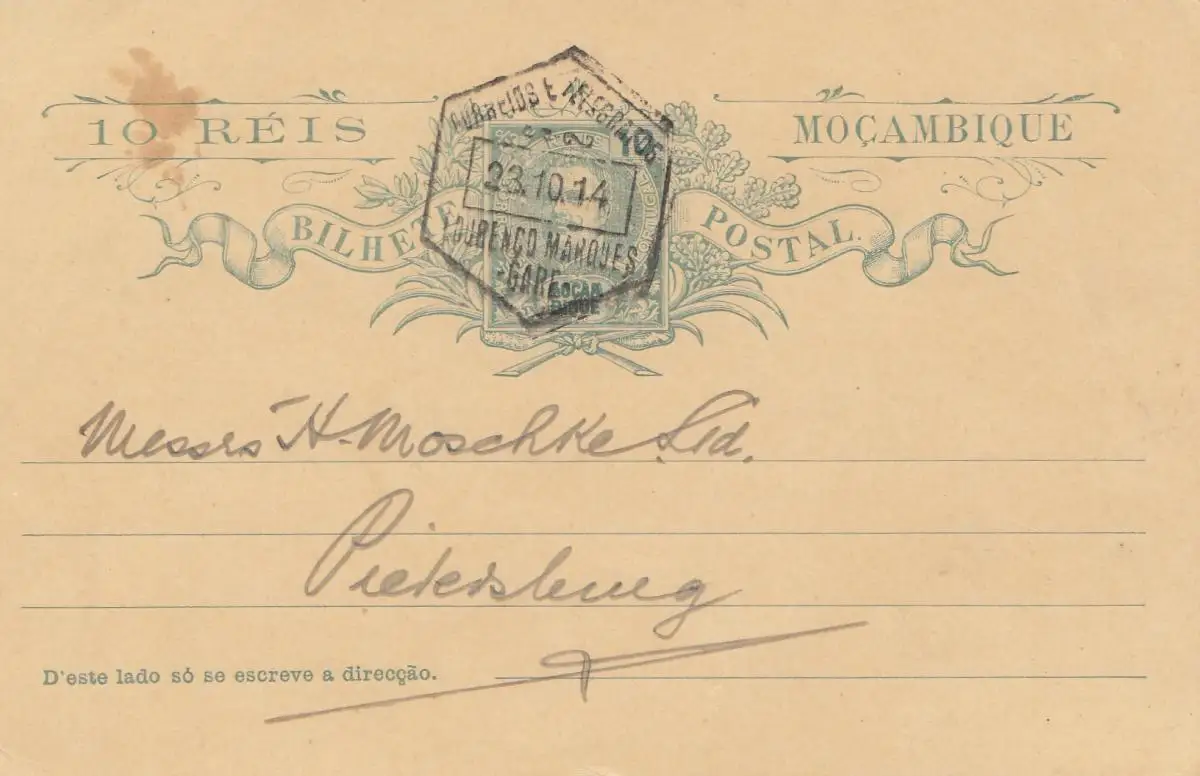 10 RÉIS
MOÇAMBIQUE
BILHETE POSTAL.
CORREIOS E TELEGRAPHOS
23.10.14
LOURENÇO MARQUES
GARE
MOÇAM
BIQUE
Messrs H. Moschke Ltd.
Pietersburg
D'este lado só se escreve a direcção.